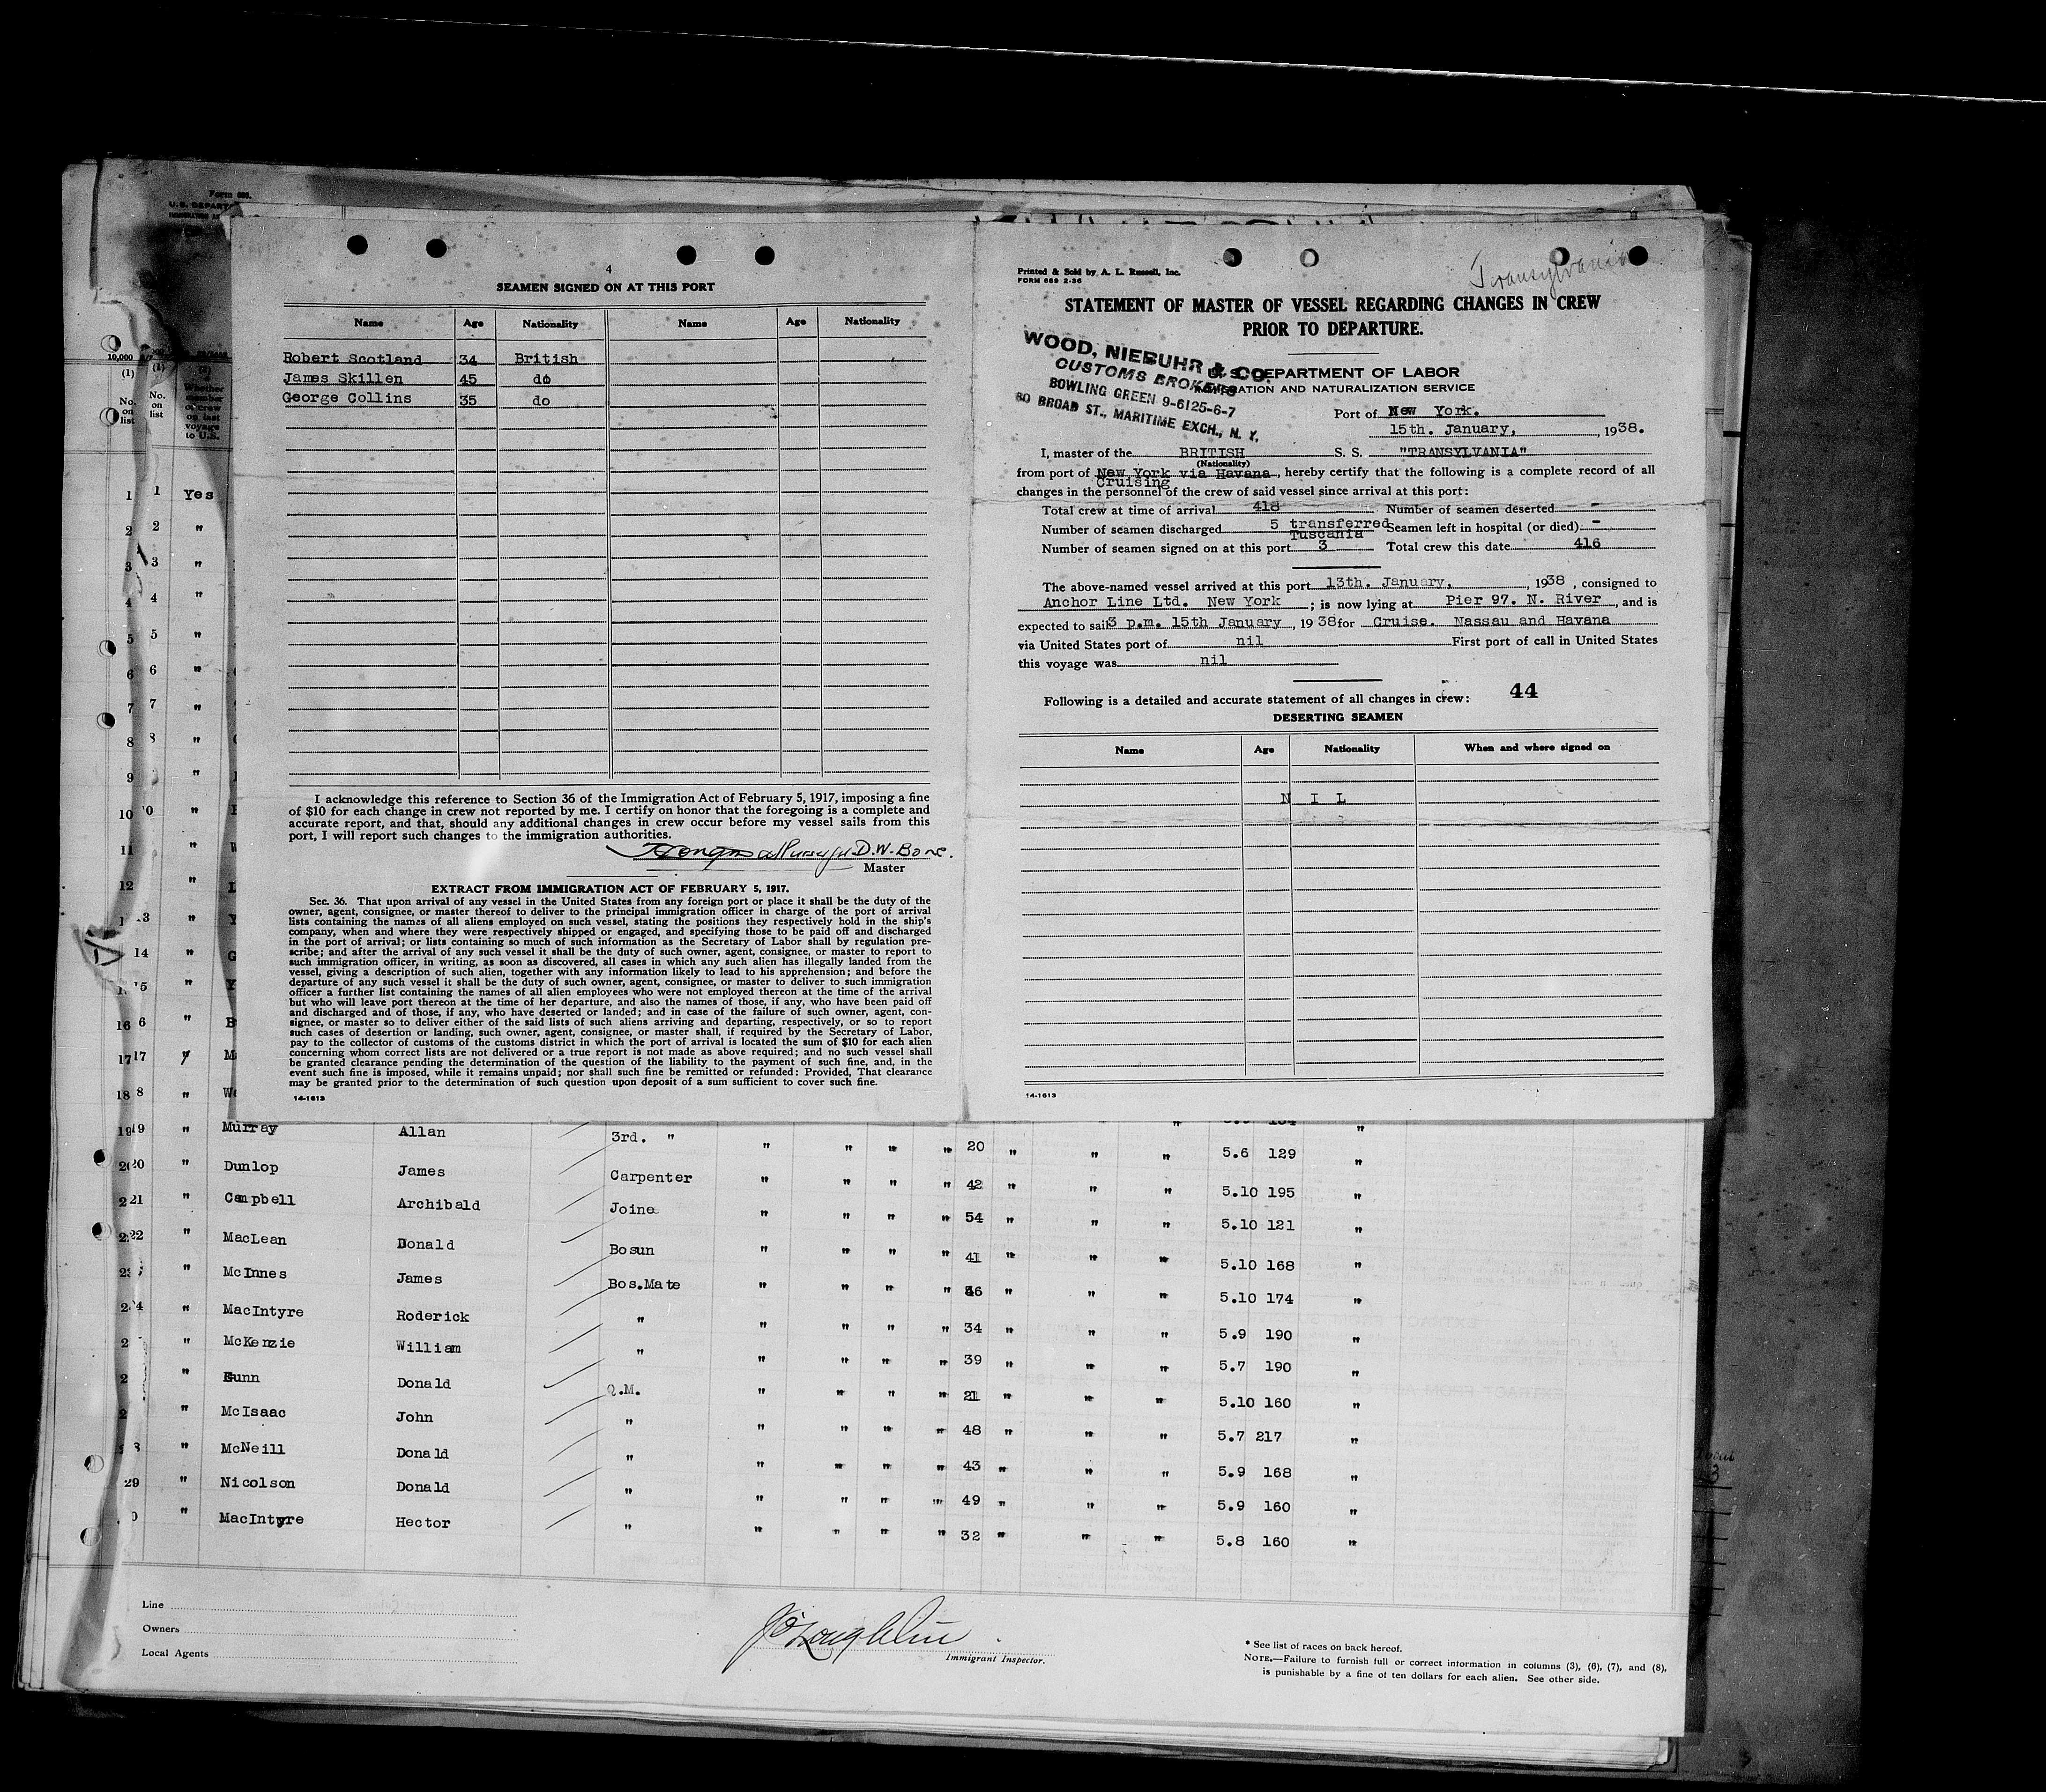 Form 689.
U.S. DEPART
4
SEAMEN SIGNED ON AT THIS PORT
Name Age Nationality Name Age Nationality
Robert Scotland 34 British
James Skillen 45 do
George Collins 35 do
I acknowledge this reference to Section 36 of the Immigration Act of February 5, 1917, imposing a fine
of $10 for each change in crew not reported by me. I certify on honor that the foregoing is a complete and
accurate report, and that, should any additional changes in crew occur before my vessel sails from this
port, I will report such changes to the immigration authorities.
D.W. Bone.
Master
EXTRACT FROM IMMIGRATION ACT OF FEBRUARY 5, 1917.
Sec. 36. That upon arrival of any vessel in the United States from any foreign port or place it shall be the duty of the
owner, agent, consignee, or master thereof to deliver to the principal immigration officer in charge of the port of arrival
lists containing the names of all aliens employed on such vessel, stating the positions they respectively hold in the ship's
company, when and where they were respectively shipped or engaged, and specifying those to be paid off and discharged
in the port of arrival; or lists containing so much of such information as the Secretary of Labor shall by regulation pre-
scribe; and after the arrival of any such vessel it shall be the duty of such owner, agent, consignee, or master to report to
such immigration officer, in writing, as soon as discovered, all cases in which any such alien has illegally landed from the
vessel, giving a description of such alien, together with any information likely to lead to his apprehension; and before the
departure of any such vessel it shall be the duty of such owner, agent, consignee, or master to deliver to such immigration
officer a further list containing the names of all alien employees who were not employed thereon at the time of the arrival
but who will leave port thereon at the time of her departure, and also the names of those, if any, who have been paid off
and discharged and of those, if any, who have deserted or landed; and in case of the failure of such owner, agent, con-
signee, or master so to deliver either of the said lists of such aliens arriving and departing, respectively, or so to report
such cases of desertion or landing, such owner, agent, consignee, or master shall, if required by the Secretary of Labor,
pay to the collector of customs of the customs district in which the port of arrival is located the sum of $10 for each alien
concerning whom correct lists are not delivered or a true report is not made as above required; and no such vessel shall
be granted clearance pending the determination of the question of the liability to the payment of such fine, and, in the
event such fine is imposed, while it remains unpaid; nor shall such fine be remitted or refunded: Provided, That clearance
may be granted prior to the determination of such question upon deposit of a sum sufficient to cover such fine.
14-1613
Transylvania
Printed & Sold by A. L. Russell, Inc.
FORM 689 2-36
STATEMENT OF MASTER OF VESSEL REGARDING CHANGES IN CREW
PRIOR TO DEPARTURE.
WOOD, NIEBUHR & CO.
CUSTOMS BROKERS
BOWLING GREEN 9-6125-6-7
80 BROAD ST., MARITIME EXCH., N. Y.
U. S. DEPARTMENT OF LABOR
IMMIGRATION AND NATURALIZATION SERVICE
Port of New York.
15th. January, , 1938.
I, master of the BRITISH S. S. "TRANSYLVANIA"
(Nationality)
from port of New York via Havana , hereby certify that the following is a complete record of all
Cruising
changes in the personnel of the crew of said vessel since arrival at this port:
Total crew at time of arrival 418 Number of seamen deserted -
Number of seamen discharged 5 transferred Seamen left in hospital (or died) -
Tuscania
Number of seamen signed on at this port 3 Total crew this date 416
The above-named vessel arrived at this port 13th. January, , 1938 , consigned to
Anchor Line Ltd. New York ; is now lying at Pier 97. N. River , and is
expected to sail 3 p.m. 15th January , 1938 for Cruise. Nassau and Havana
via United States port of nil First port of call in United States
this voyage was nil
Following is a detailed and accurate statement of all changes in crew: 44
DESERTING SEAMEN
Name Age Nationality When and where signed on
N I L
14-1613
10,000
(1) (1) (2)
No. on list No. on list Whether member of crew on last voyage to U.S.
1 1 Yes
2 2 "
3 3 "
4 4 "
5 5 "
6 6 "
7 7 "
8 8 "
9 "
10 "
11 "
12 "
13 "
14 "
15 "
16 "
17 17 "
18 "
19 " Murray Allan 3rd. " " " " " 20 " " " "
20 " Dunlop James Carpenter " " " " 42 " " " 5.6 129 "
21 " Campbell Archibald Joine " " " " 54 " " " 5.10 195 "
22 " MacLean Donald Bosun " " " " 41 " " " 5.10 121 "
" McInnes James Bos.Mate " " " " 46 " " " 5.10 168 "
" MacIntyre Roderick " " " " " 34 " " " 5.10 174 "
" McKenzie William " " " " " 39 " " " 5.9 190 "
" Gunn Donald Q.M. " " " " 21 " " " 5.7 190 "
" McIsaac John " " " " " 48 " " " 5.10 160 "
" McNeill Donald " " " " " 43 " " " 5.7 217 "
29 " Nicolson Donald " " " " " 49 " " " 5.9 168 "
" MacIntyre Hector " " " " " 32 " " " 5.9 160 "
5.8 160 "
Line
Owners
Local Agents
Immigrant Inspector.
* See list of races on back hereof.
NOTE.—Failure to furnish full or correct information in columns (3), (6), (7), and (8),
is punishable by a fine of ten dollars for each alien. See other side.